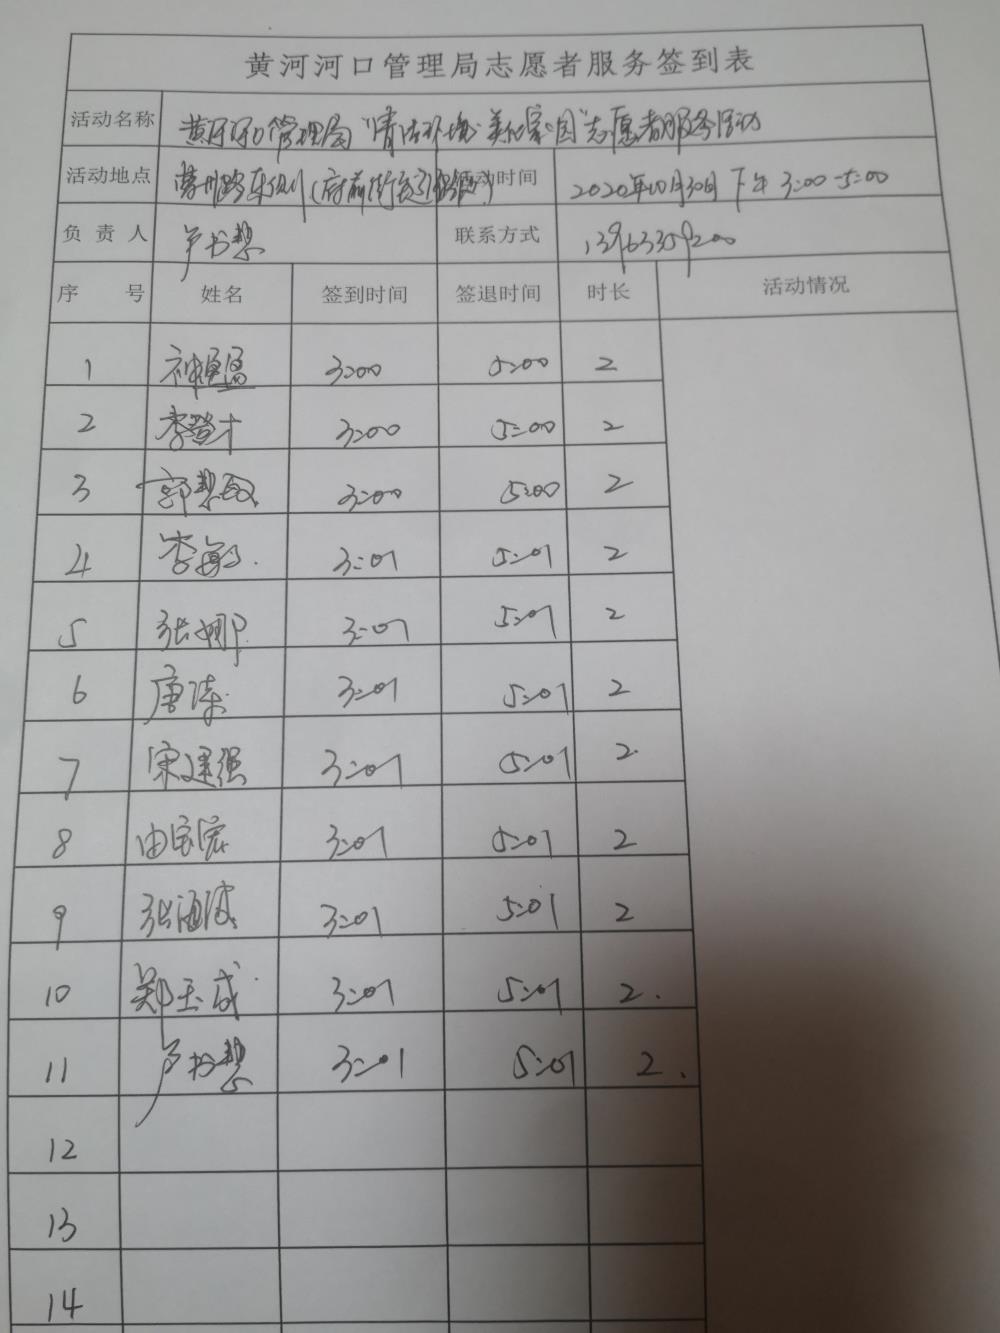 黄河河口管理局志愿者服务签到表
活动名称 黄河河口管理局"清洁环境 美化家园"志愿者服务活动
活动地点 (府前街 活动时间 2020年10月30日 下午 3:00-5:00
负责人 卢书慧 联系方式 13963359200
序号 姓名 签到时间 签退时间 时长 活动情况
1 3:00 5:00 2
2 李登才 3:00 5:00 2
3 郭慧敏 3:00 5:00 2
4 李敏 3:01 5:01 2
5 张娜 3:01 5:01 2
6 唐涛 3:01 5:01 2
7 宋建强 3:01 5:01 2
8 由宝宏 3:01 5:01 2
9 张海波 3:01 5:01 2
10 郑玉成 3:01 5:01 2.
11 卢书慧 3:01 5:01 2.
12
13
14